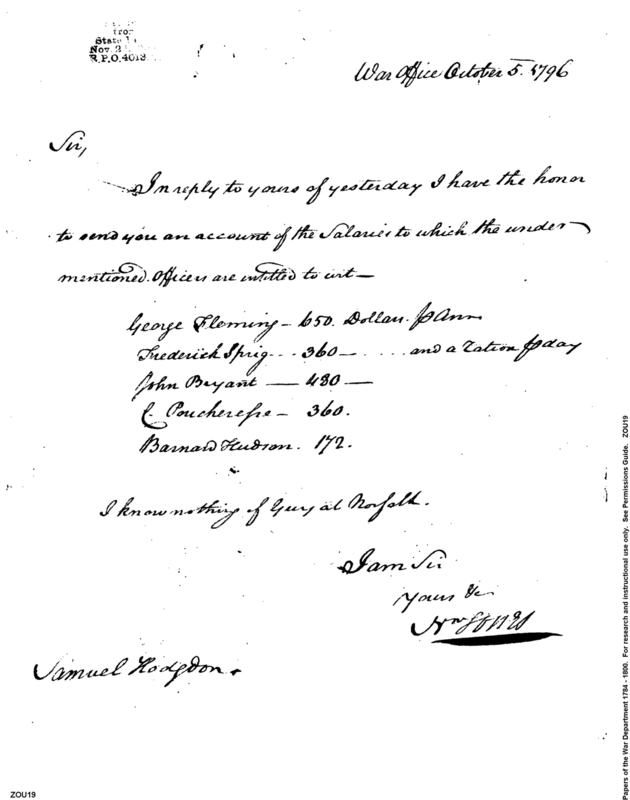 from
State
Nov. 2
R.P.O. 4013
War Office October 5. 1796
Sir,
In reply to yours of yesterday I have the honor
to send you an account of the Salaries to which the under
mentioned Officers are intitled to wit—
George Fleming – 650. Dollars. ⅌ Ann
Frederick Sprig... 360 — .... and a ration ⅌ day
John Bryant — 480 —
C. Poucheresse – 360.
Barnard Hudson. 172.
I know nothing of Gury at Norfolk.
I am Sir
Yours &c
Samuel Hodgdon.
ZOU19
Papers of the War Department 1784 - 1800. For research and instructional use only. See Permissions Guide. ZOU19